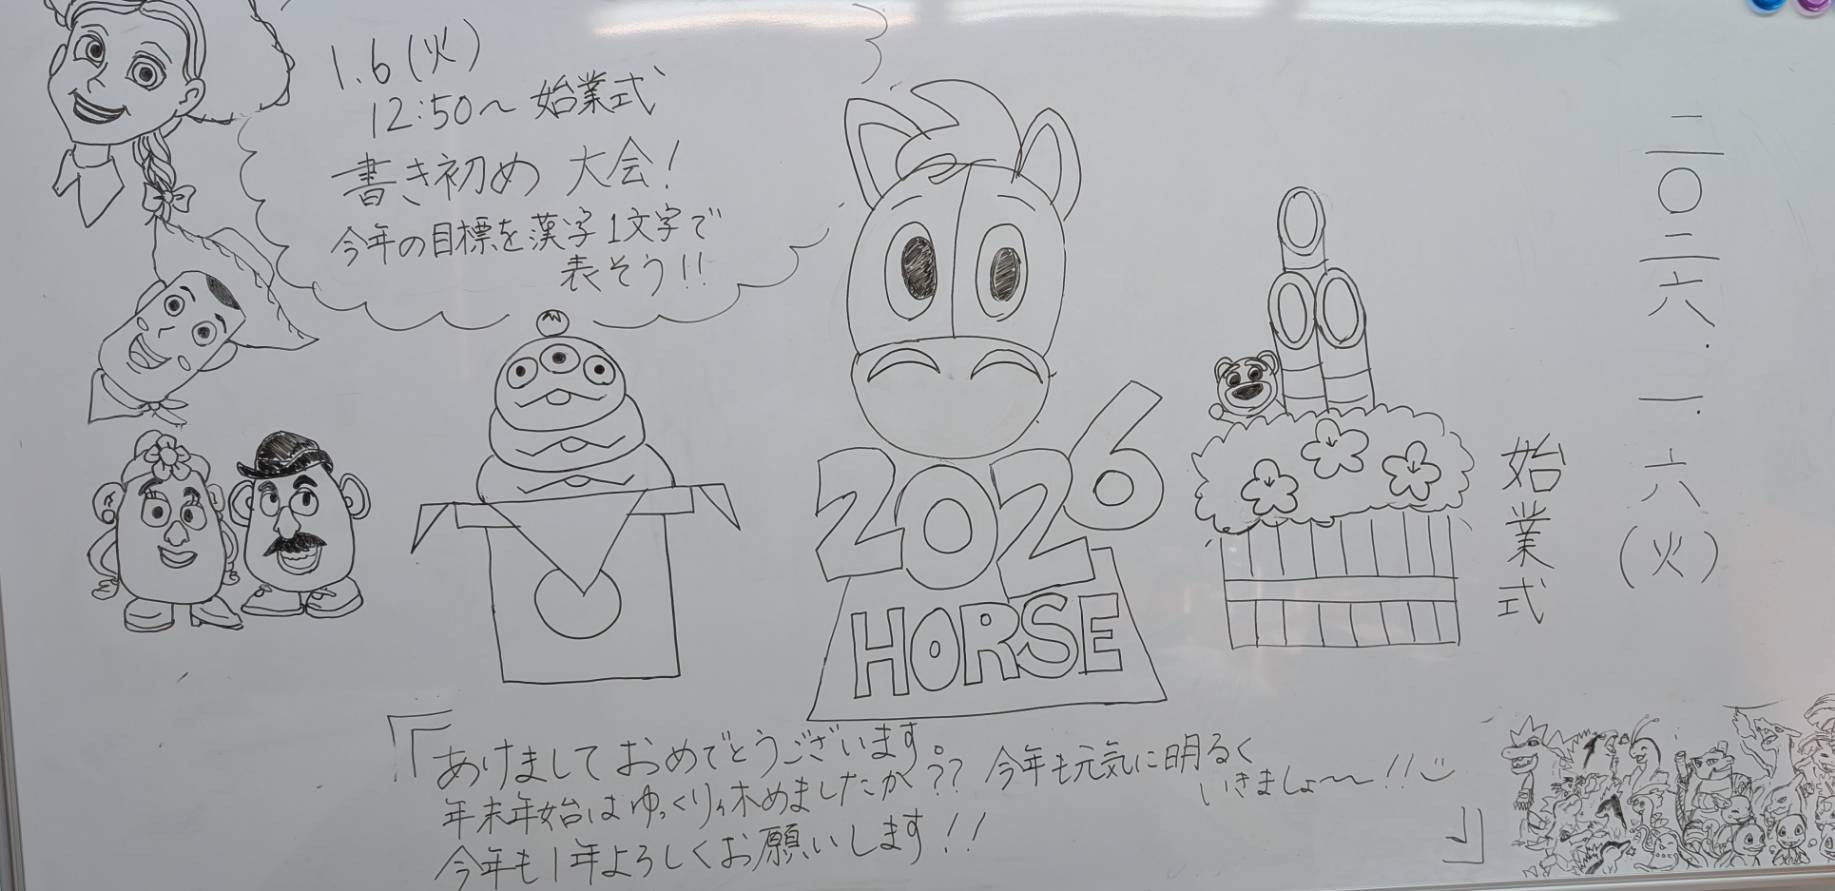 1.6(火)
12:50〜始業式
書き初め 大会!
今年の目標を漢字1文字で
表そう!!
2026
HORSE
二〇二六.一.六(火)
始業式
「あけましておめでとうございます。
年末年始はゆっくり休めましたか?? 今年も元気に明るく
いきましょ〜〜!!
今年も1年よろしくお願いします!!
」